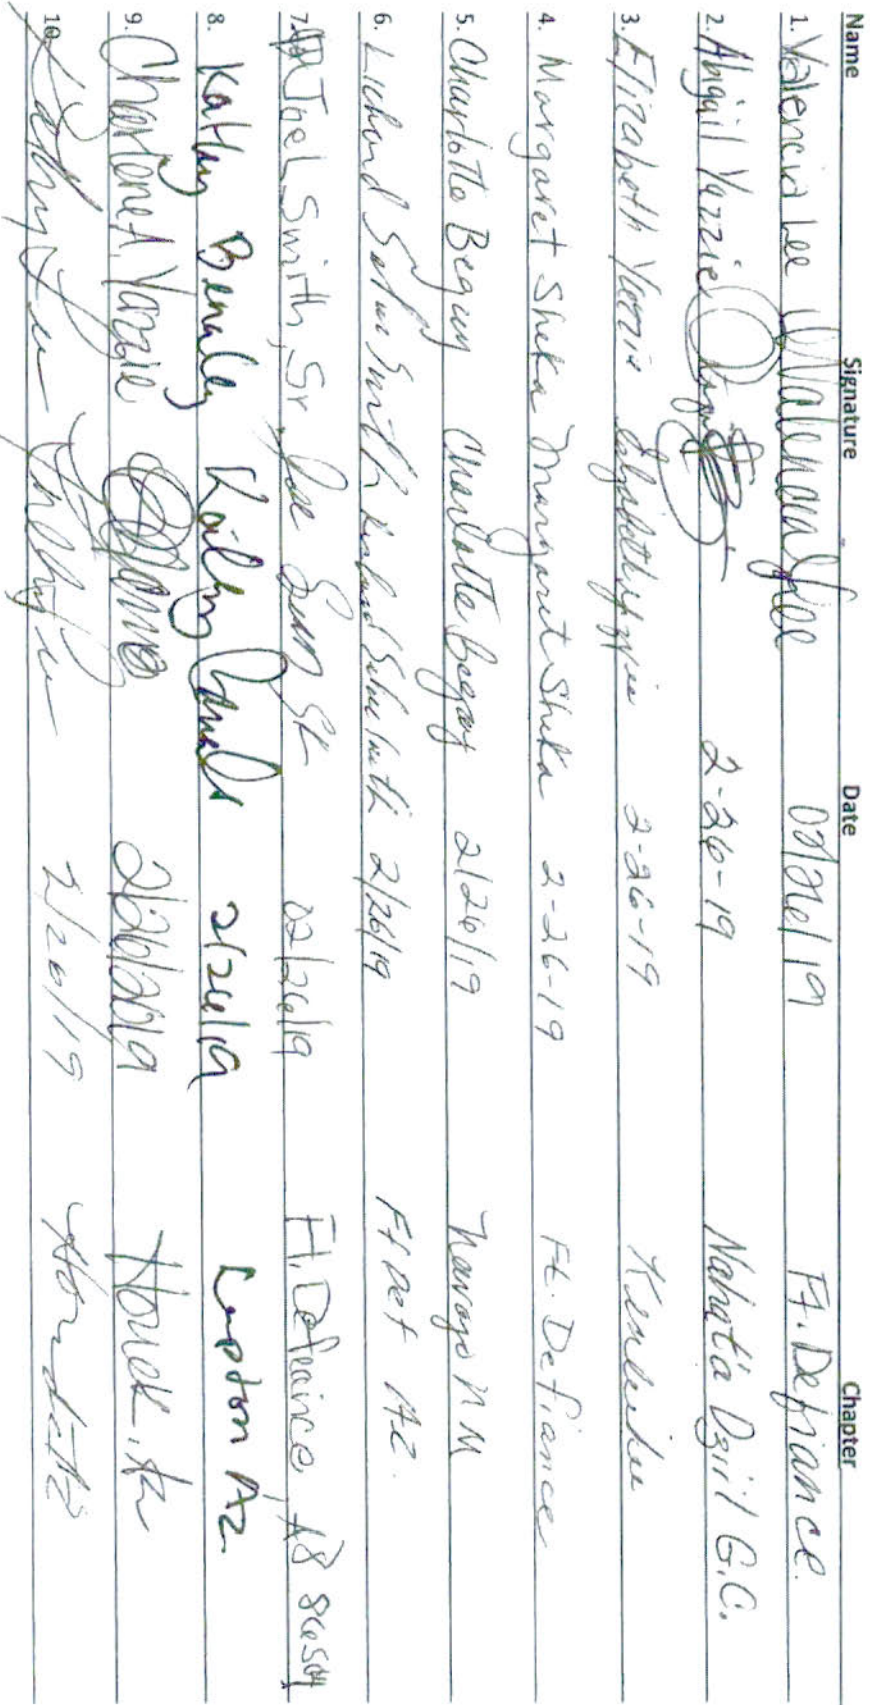 Name Signature Date Chapter
1. Valencia Lee Valencia Lee 02/26/19 Ft. Defiance.
2. Abigail Yazzie 2-26-19 Nahat'a Dziil G.C.
3. Elizabeth Yazzie Elizabeth Yazzie 2-26-19
4. Margaret Sheka Margaret Sheka 2-26-19 Ft. Defiance
5. Charlotte Begay Charlotte Begay 2/26/19 Navajo NM
6. Smith 2/26/19 Ft Def AZ.
7. Joe L Smith, Sr 02/26/19 Ft. Defiance AZ 86504
8. Kathy Benally Kathy 2/26/19 Lupton AZ
9. Charlene A. Yazzie 2/26/2019 Houck, Az
10. 2/26/19